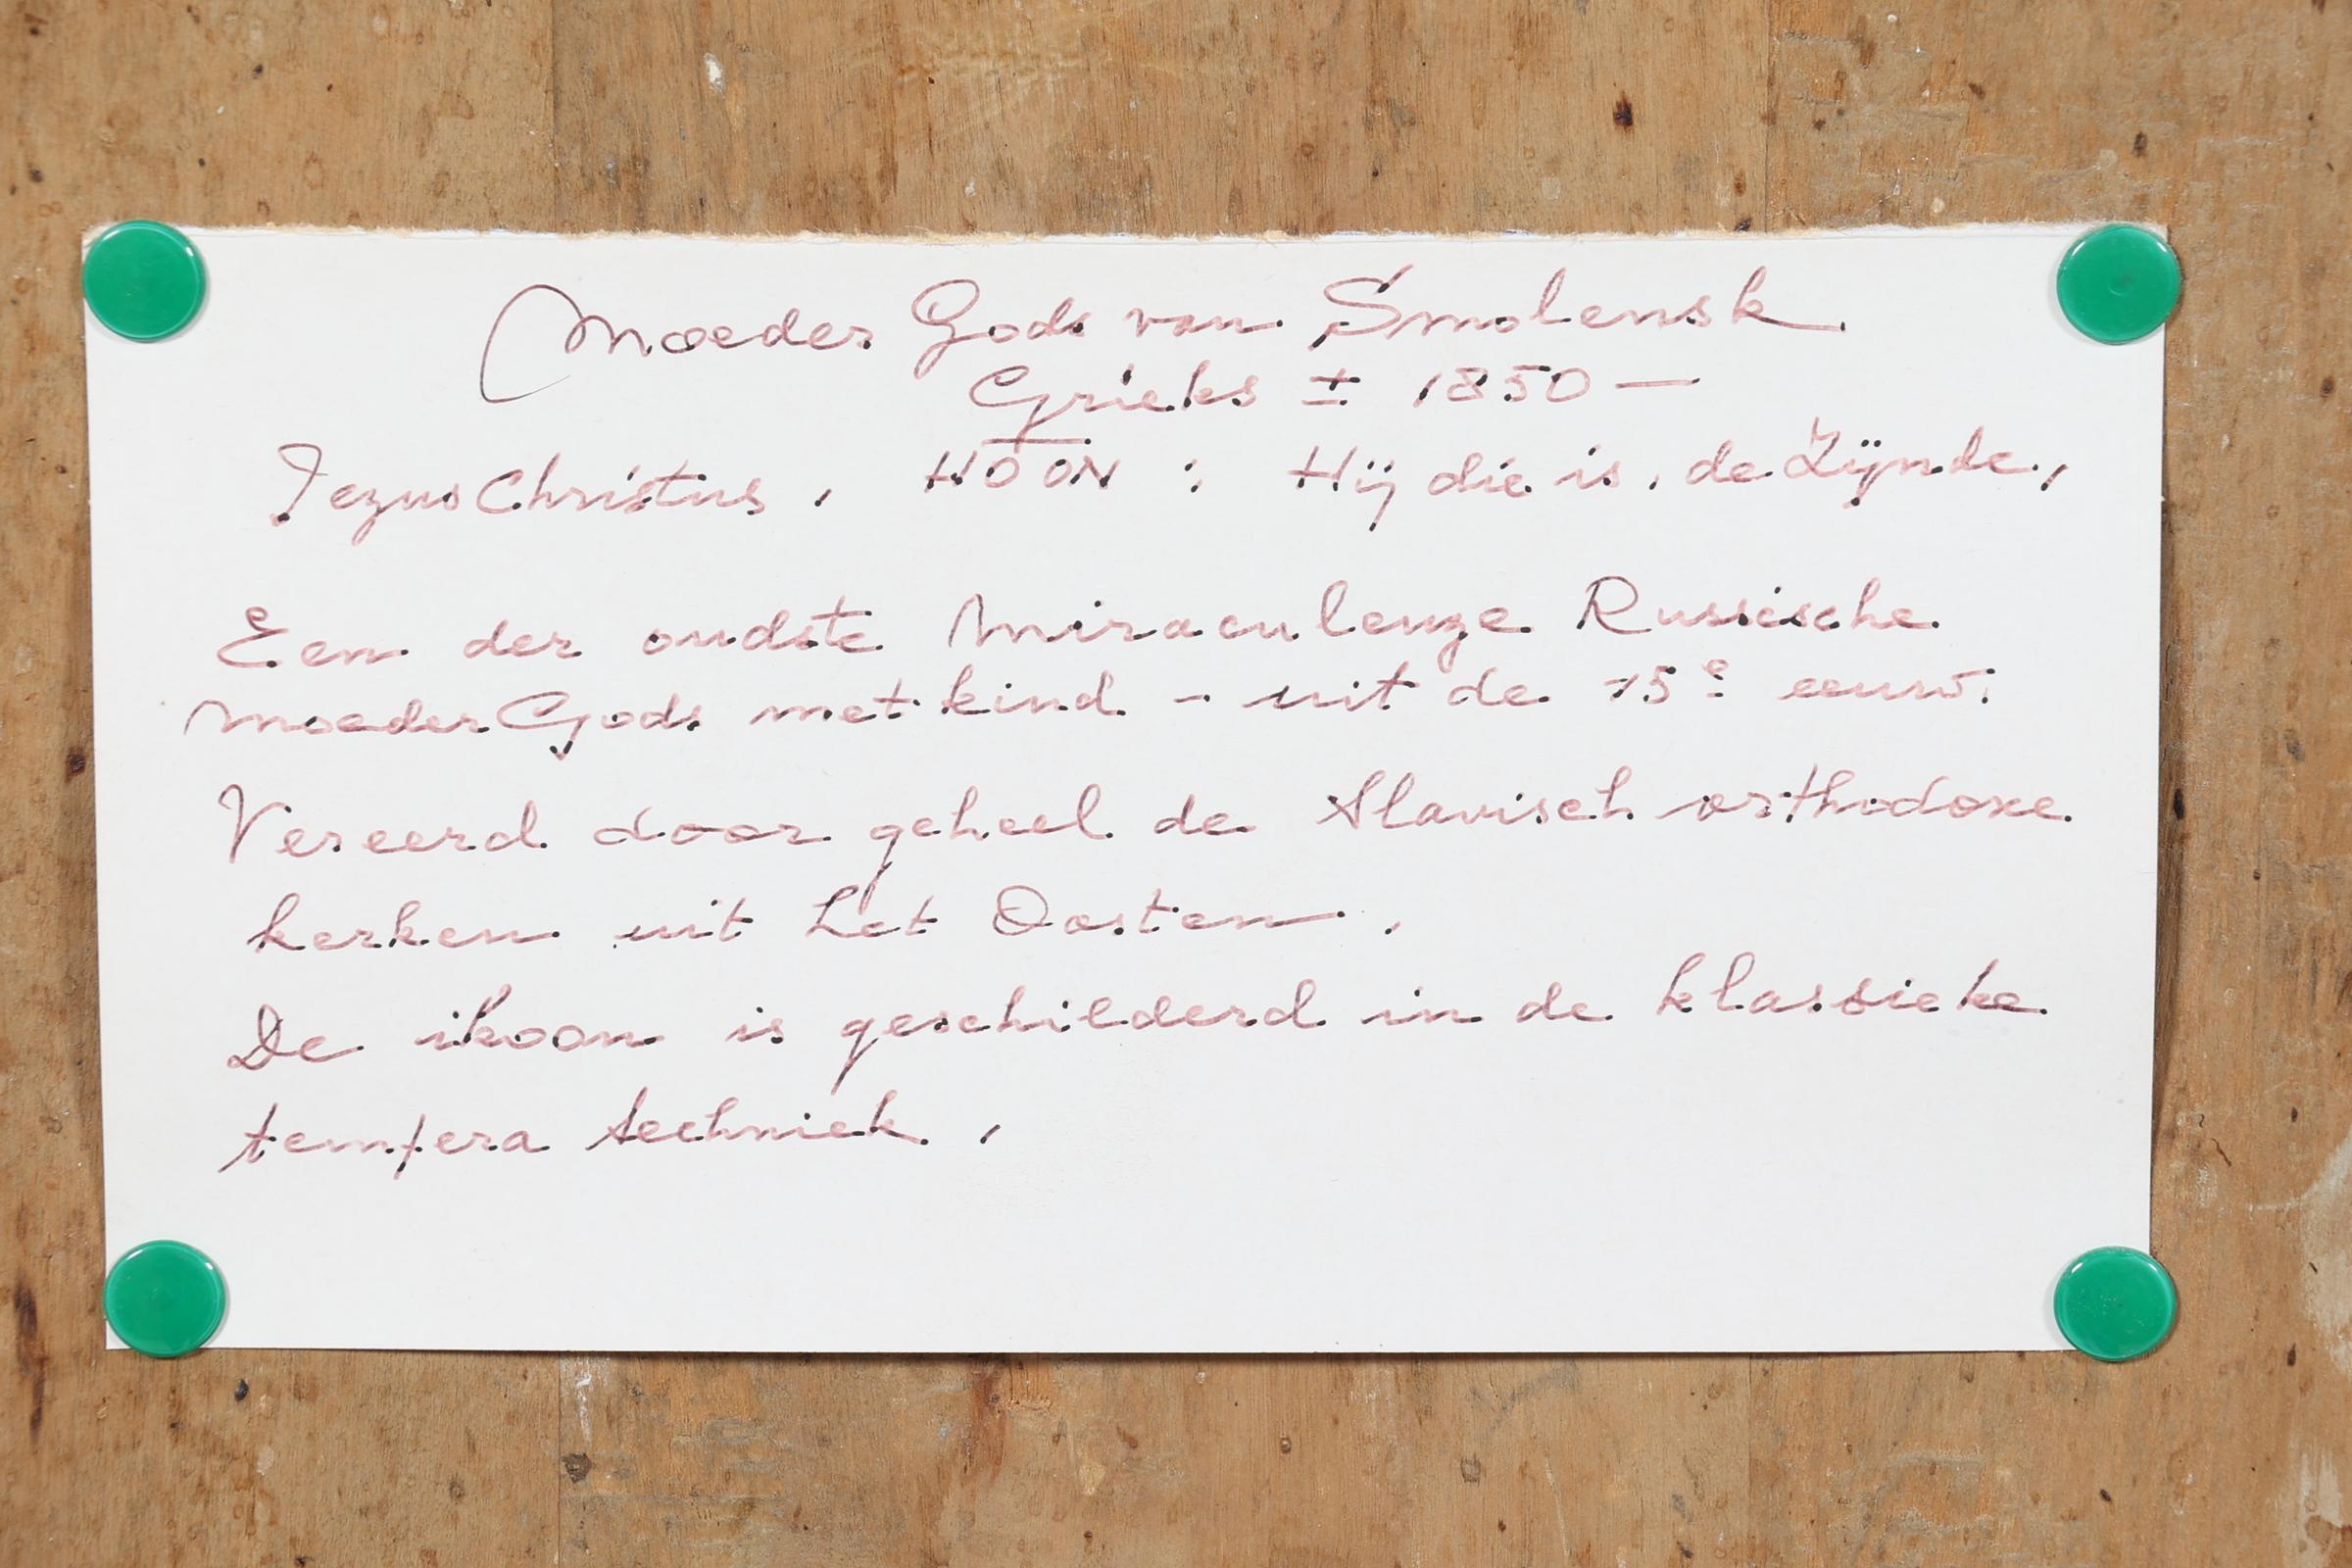 Moeder Gods van Smolensk
Grieks ± 1850 —
Jezus Christus, HO ON : Hij die is, de Zijnde,
Een der oudste Miraculeuze Russische
Moeder Gods met kind - uit de 15e eeuw.
Vereerd door geheel de Slavisch orthodoxe
kerken uit het Oosten.
De ikoon is geschilderd in de klassieke
tempera techniek.